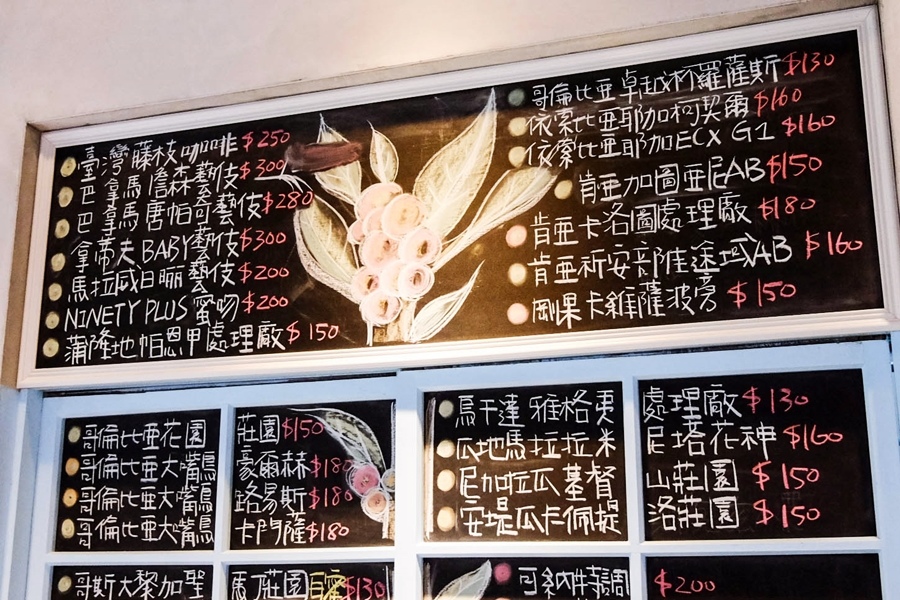 臺灣藤枝咖啡 $250
巴拿馬詹森藝伎 $300
巴拿馬唐帕奇藝伎 $280
拿蒂夫BABY藝伎 $300
馬拉威日曬藝伎 $200
NINETY PLUS 蜜吻 $200
蒲隆地帕恩甲處理廠 $150
哥倫比亞卓越杯羅薩斯 $130
依索比亞耶加柯契爾 $160
依索比亞耶加ECX G1 $160
肯亞加圖亞尼AB $150
肯亞卡洛圖處理廠 $180
肯亞祈安部佳途域AB $160
剛果卡維薩波旁 $150
哥倫比亞花園莊園 $150
哥倫比亞大嘴鳥豪爾赫 $180
哥倫比亞大嘴鳥路易斯 $180
哥倫比亞大嘴鳥卡門薩 $180
烏干達雅格夷處理廠 $130
瓜地馬拉拉米尼塔花神 $160
尼加拉瓜基督山莊園 $150
安堤瓜卡佩提洛莊園 $150
哥斯大黎加聖馬 莊園 $130
可 $200